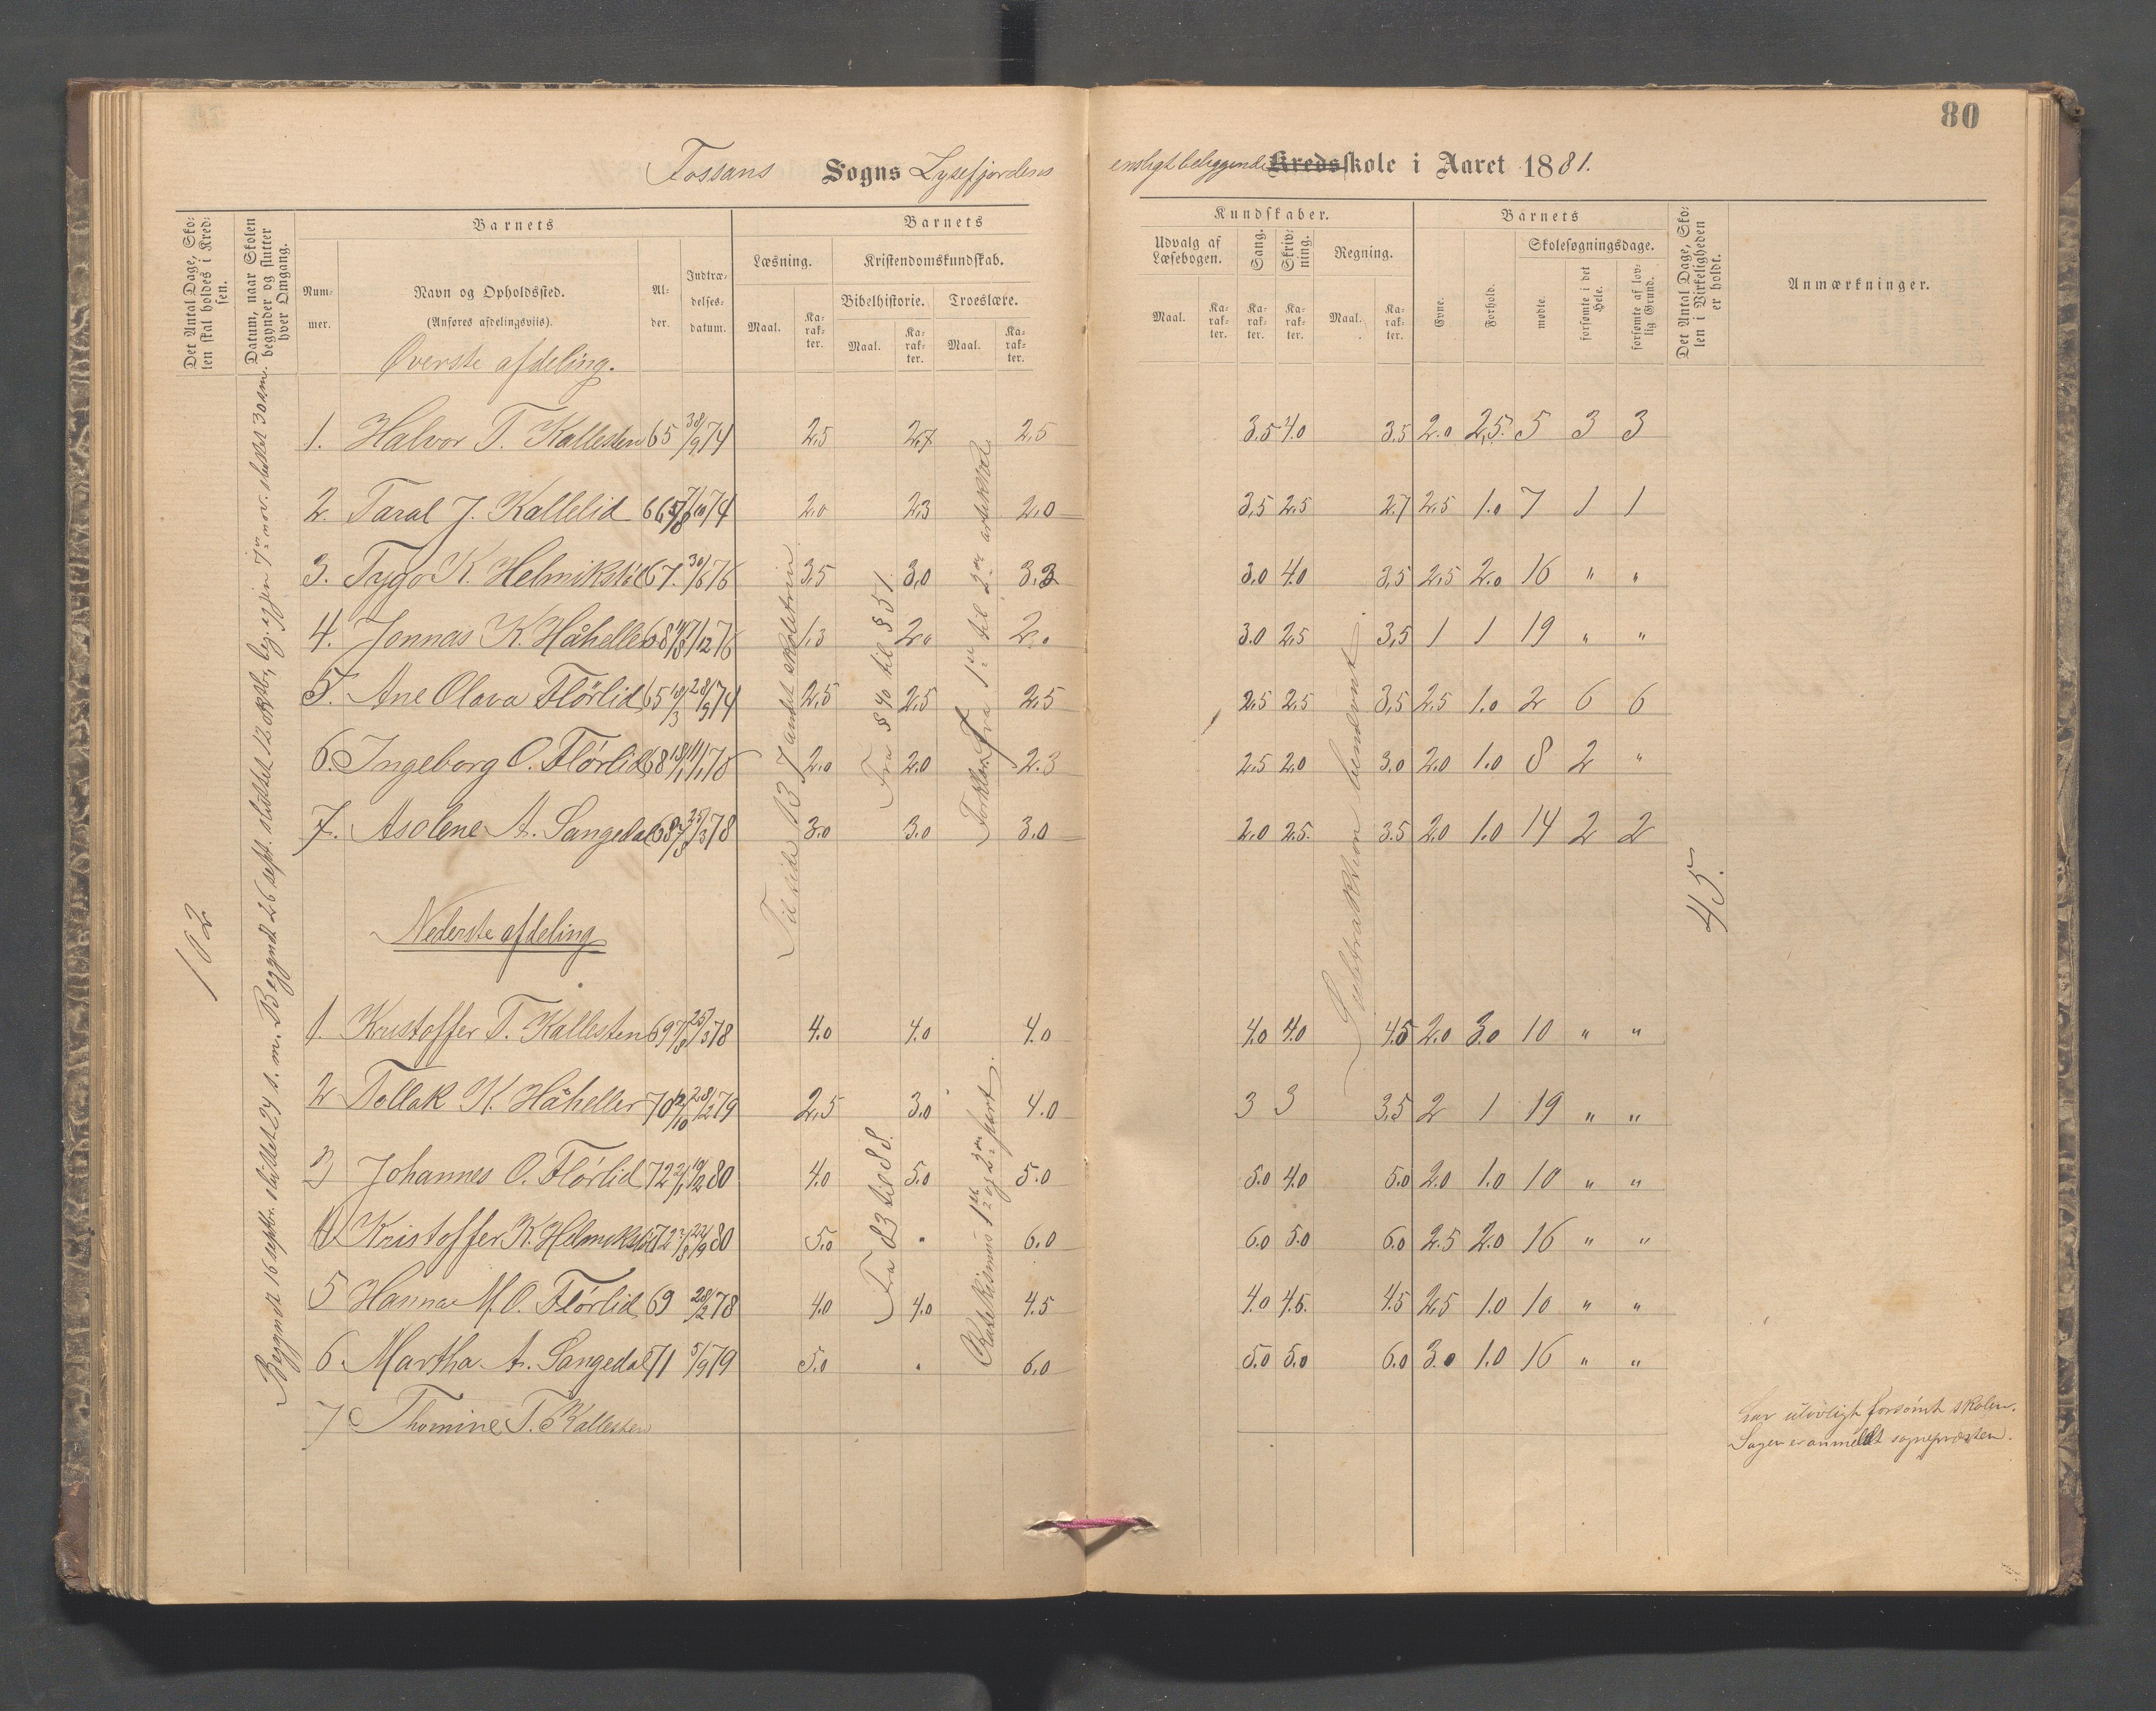 80
Fossans Sogns Lysefjordens ensligtbeliggende Kredsskole i Aaret 1881.
Det Antal Dage, Skolen skal holdes i Kredsen.
Datum, naar Skolen begynder og slutter hver Omgang.
Barnets
Barnets
Kundskaber.
Barnets
Det Antal Dage, Skolen i Virkeligheden er holdt.
Anmærkninger.
Nummer.
Navn og Opholdssted.
(Anføres afdelingsviis).
Alder.
Indtrædelsesdatum.
Læsning.
Kristendomskundskab.
Udvalg af Læsebogen.
Sang.
Skrivning.
Regning.
Evne.
Forhold.
Skolesøgningsdage.
Bibelhistorie.
Troeslære.
mødte.
forsømte i det Hele.
forsømte af lovlig Grund.
Maal. Karakter. Maal. Karakter. Maal. Karakter. Maal. Karakter. Karakter. Karakter. Maal. Karakter.
Øverste afdeling.
1. Halvor T. Kallesten 65 30/9 74 2,5 2,7 2,5 3.5 4.0 3.5 2.0 2,5. 5 3 3
2. Taral J. Kallelid 66 7/10 74 2.0 2,3 2,0 3,5 2,5 2.7 2,5 1.0 7 1 1
3. Tygo K. Helmikstöl 67. 30/6 76 3,5 3,0 3,3 3,0 4.0 3,5 2,5 2.0 16 " "
4. Jonnas K. Håheller 68 7/12 76 1,3 2.0 2.0 3.0 2,5 3,5 1 1 19 " "
5. Ane Olava Flörlid 65 28/9 74 2,5 2,5 2,5 2,5 2,5 3,5 2,5 1.0 2 6 6
6. Ingeborg O. Flörlid 68 2.0 2.0 2.3 2,5 2,0 3.0 2.0 1.0 8 2 "
7. Asolene A. Sangedal 68 25/3 78 3.0 3.0 3.0 2,0 2,5. 3.5 2.0 1.0 14 2 2
102
Begyndt 16 septbr. sluttet 24 s. m. Begyndt 26 sept. sluttet 12 oktbr, beg. igjen 7de nov. sluttet 30 sm.
Til side 137 andet skoletrin
Fra § 40 til § 51.
Forklar. Fra 1ste til 2den artikkel
Subtraktion benævnt
45.
Nederste afdeling
1. Kristoffer T. Kallesten 69 25/3 78 4.0 4.0 4.0 4.0 4.0 4.5 2.0 3.0 10 " "
2 Tollak K. Håheller 70 28/2 79 2,5 3.0 4.0 3 3 3,5 2 1 19 " "
3 Johannes O. Flörlid 72 19/2 80 4.0 5.0 5.0 5.0 4.0 5.0 2.0 1.0 10 " "
4 Kristoffer K. Helmikstöl 72 22/9 80 5.0 " 6.0 6.0 5.0 6.0 2.5 2.0 16 " "
5 Hanna M. O. Flörlid 69 28/2 78 4.0 4.0 4.5 4.0 4.5. 4.5 2,5 1.0 10 " "
6. Martha A. Sangedal 71 5/9 79 5.0 " 6.0 5.0 5.0 6.0 3.0 1.0 16 " "
7 Thomine T. Kallesten
Fra 83 til 88.
Katekismus 1ste og 2den part.
har ulovligt forsömt skolen.
Sagen er anmeldt sognepræsten.